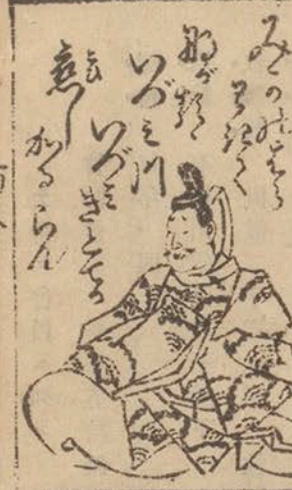 みかのはら
わきて
ながる
いづミ川
いづミきとてか
恋し
かるらん